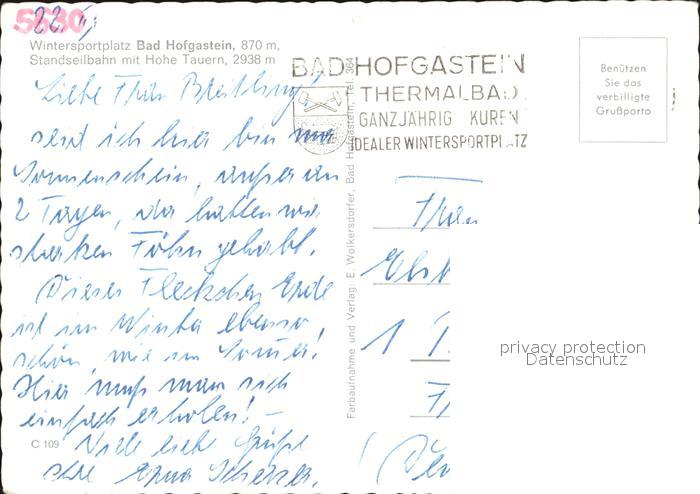 5630
22.
Wintersportplatz Bad Hofgastein, 870 m,
Standseilbahn mit Hohe Tauern, 2938 m
BAD HOFGASTEIN
THERMALBAD
GANZJÄHRIG KUREN
IDEALER WINTERSPORTPLATZ
Benützen
Sie das
verbilligte
Grußporto
Liebe Frau Breitling,
seit ich hier bin nur
Sonnenschein, außer an
2 Tagen, da hatten wir
starken Föhn gehabt.
Dieses Fleckchen Erde
ist im Winter ebenso
schön, wie im Sommer!
Hier muß man sich
einfach erholen! –
Viele liebe Grüße
Ihre Erna Scherer.
C 109
Farbaufnahme und Verlag: E. Wolkersdorfer, Bad Hofgastein, Tel. 364
Frau
1
privacy protection
Datenschutz